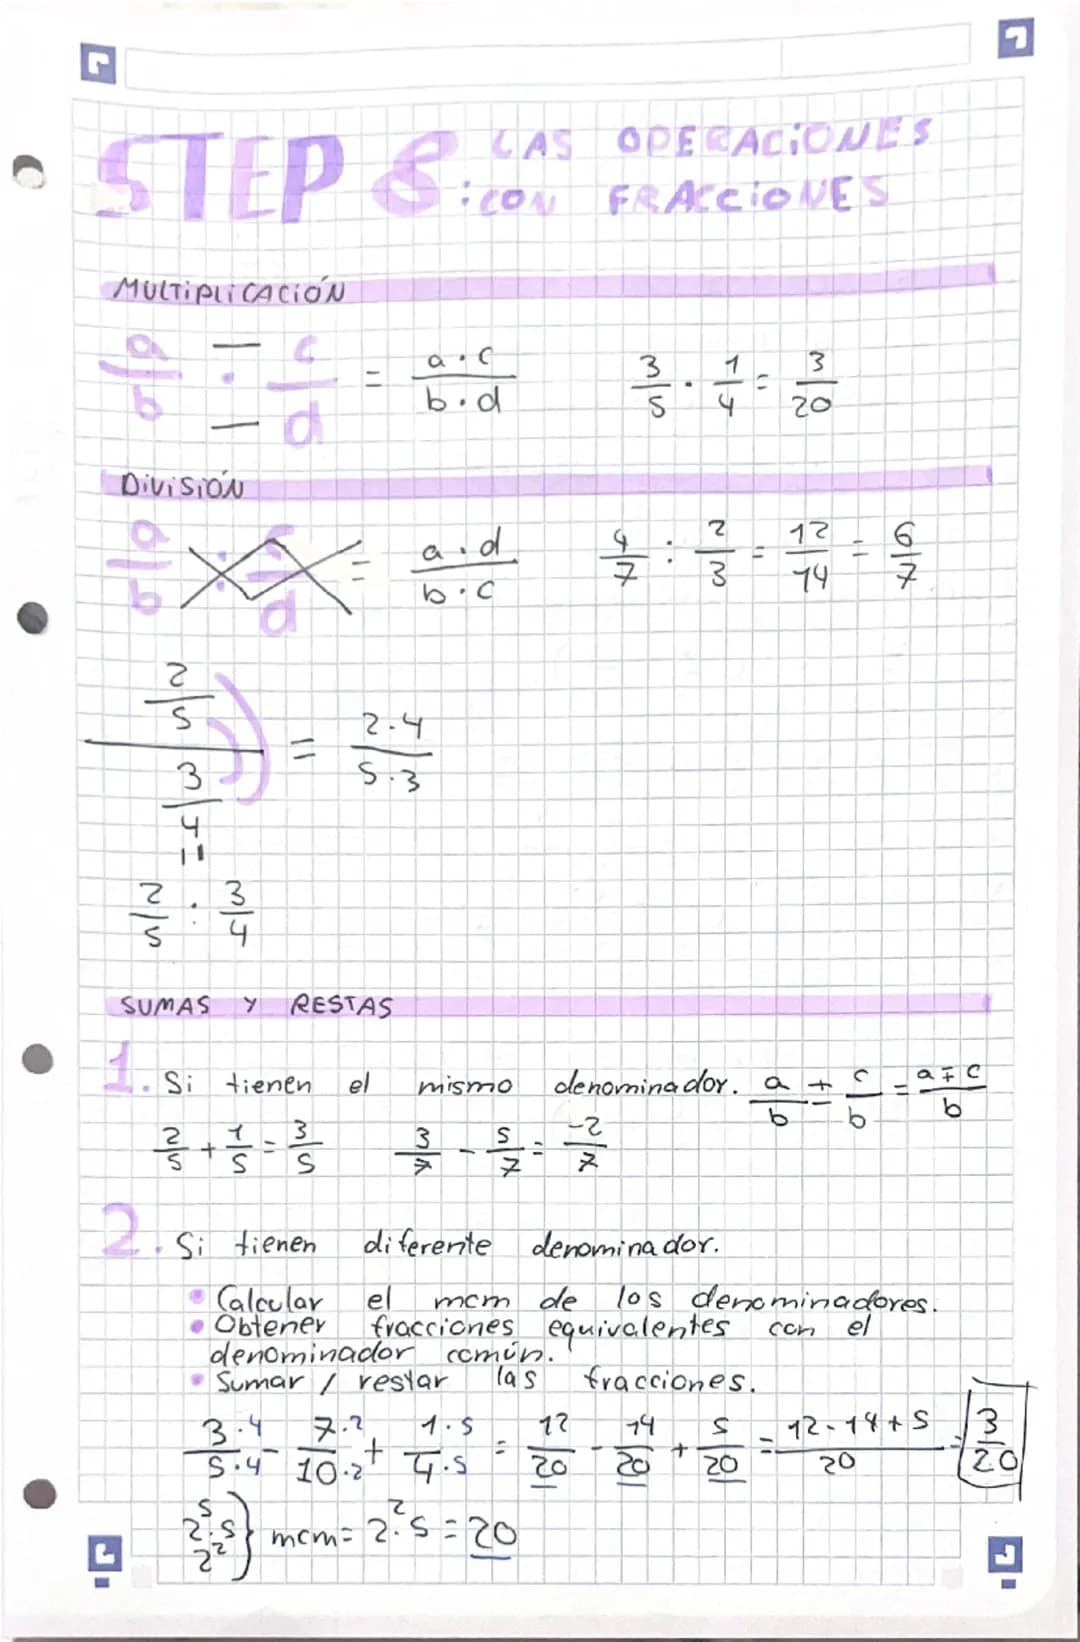 STEP 8 : LAS OPERACIONES
CON FRACCIONES
MULTIPLICACIÓN
a/b · c/d = a·c / b·d    3/5 · 1/4 = 3/20
DIVISIÓN
a/b : c/d = a·d / b·c    4/7 : 2/3 = 12/14 = 6/7
2/5 / 3/4 = 2·4 / 5·3
=
2/5 : 3/4
SUMAS Y RESTAS
1. Si tienen el mismo denominador. a/b ± c/b = a∓c / b
2/5 + 1/5 = 3/5    3/7 - 5/7 = -2/7
2. Si tienen diferente denominador.
• Calcular el mcm de los denominadores.
• Obtener fracciones equivalentes con el
denominador común.
• Sumar / restar las fracciones.
3·4 / 5·4 - 7·2 / 10·2 + 1·5 / 4·5 = 12/20 - 14/20 + 5/20 = 12-14+5 / 20 = 3/20
5
2·5 } mcm = 2²·5 = 20
2²